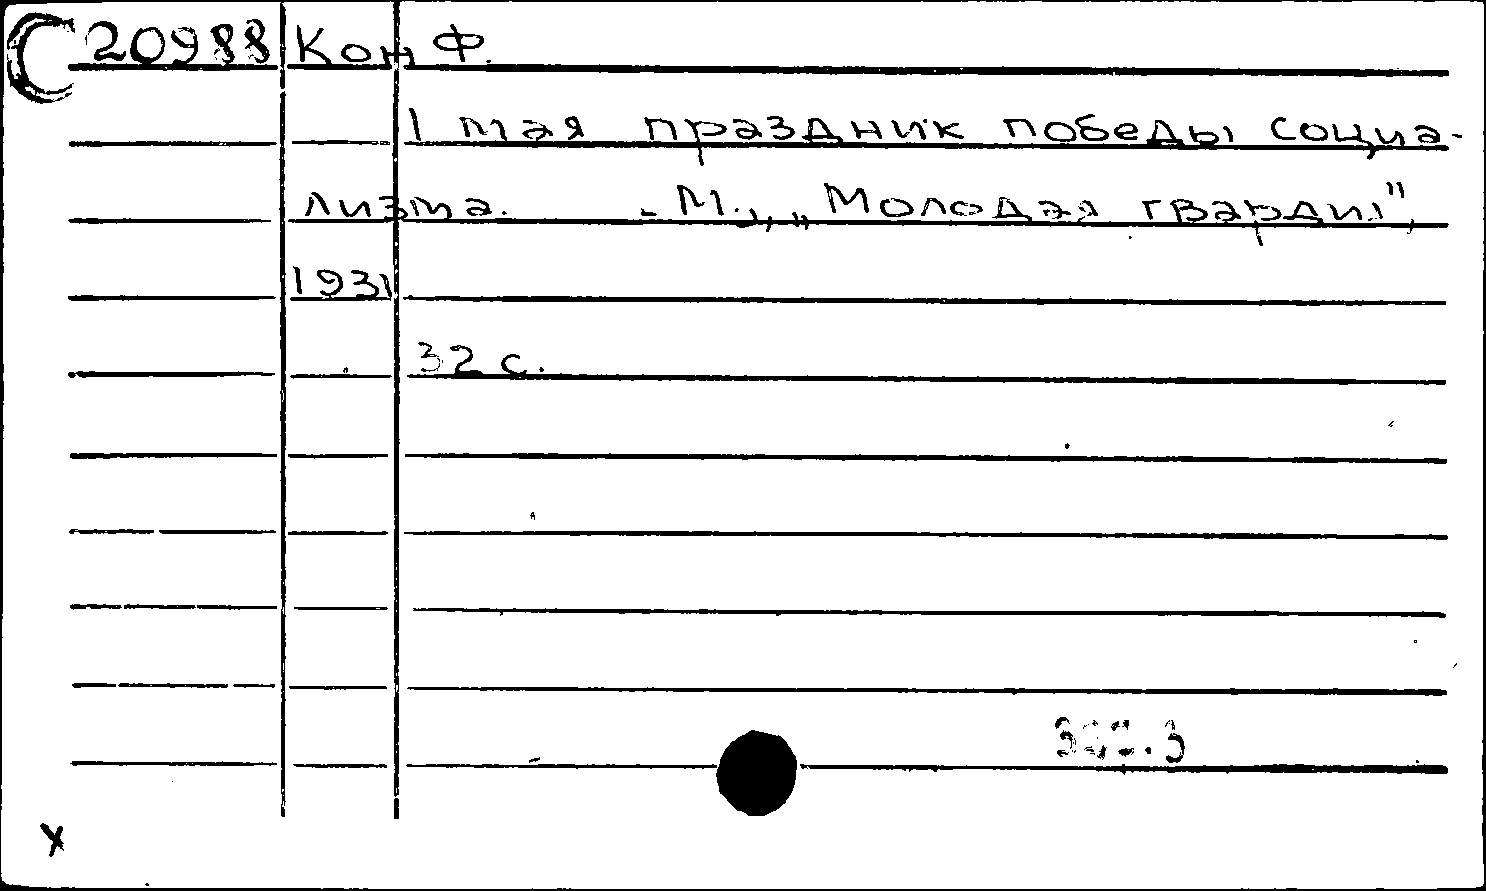 C 20988 Кон Ф.
1 мая праздник победы социа-
лизма. - М., „Молодая гвардия",
1931
32 с.
x